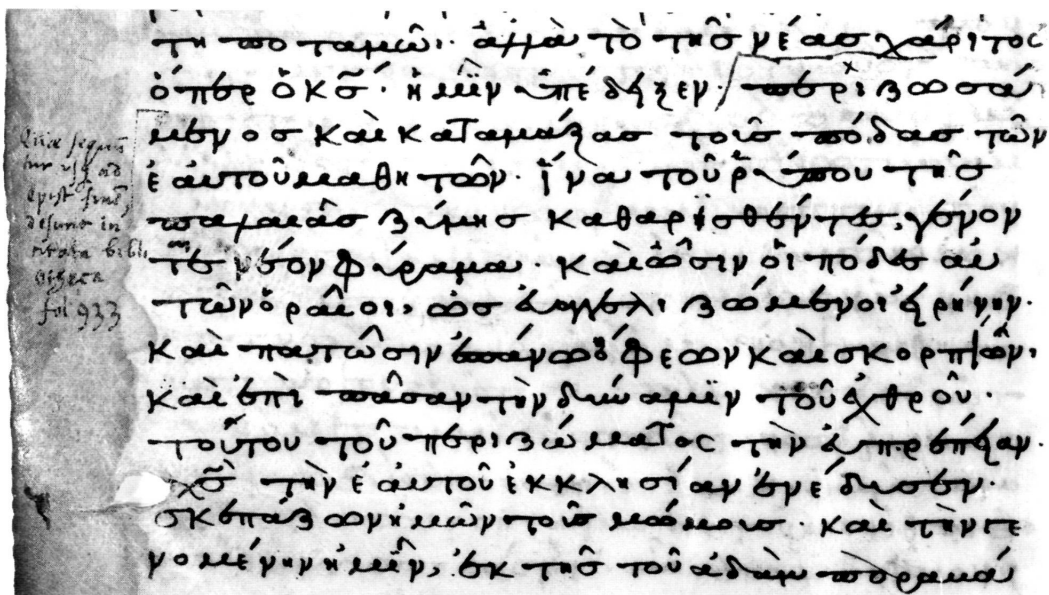 τη ποταμῶ· ἅμα τὸ τῆς νέας χάριτος
ὅπερ ὁ κς̄· ἡμῖν ὑπέδειξεν· / περιζωσά
μενος καὶ καταμάξας τοὺς πόδας τῶν
ἑαυτοῦ μαθητῶν· ἵνα τοῦ ῥύπου τῆς
παλαιᾶς ζύμης καθαρισθέντες, γένον
ται νέον φύραμα· καὶ ὦσιν οἱ πόδες αὐ
τῶν ὁραῖοι, ὡς εὐαγγελιζόμενοι εἰρήνην·
καὶ πατῶσιν ἐπάνω ὄφεων καὶ σκορπίων,
καὶ ἐπὶ πᾶσαν τὴν δύναμιν τοῦ ἐχθροῦ·
τούτου τοῦ περιζώματος τὴν εὐπρέπειαν·
χς̄ τὴν ἑαυτοῦ ἐκκλησίαν ἐνέδυσεν·
σκεπάζων ἡμῶν τοὺς μώμους· καὶ τὴν γε
νομένην ἡμῖν, ἐκ τῆς τοῦ ἀδὰμ
Quae sequun
tur usque ad
epist finem
desunt in
fol 933